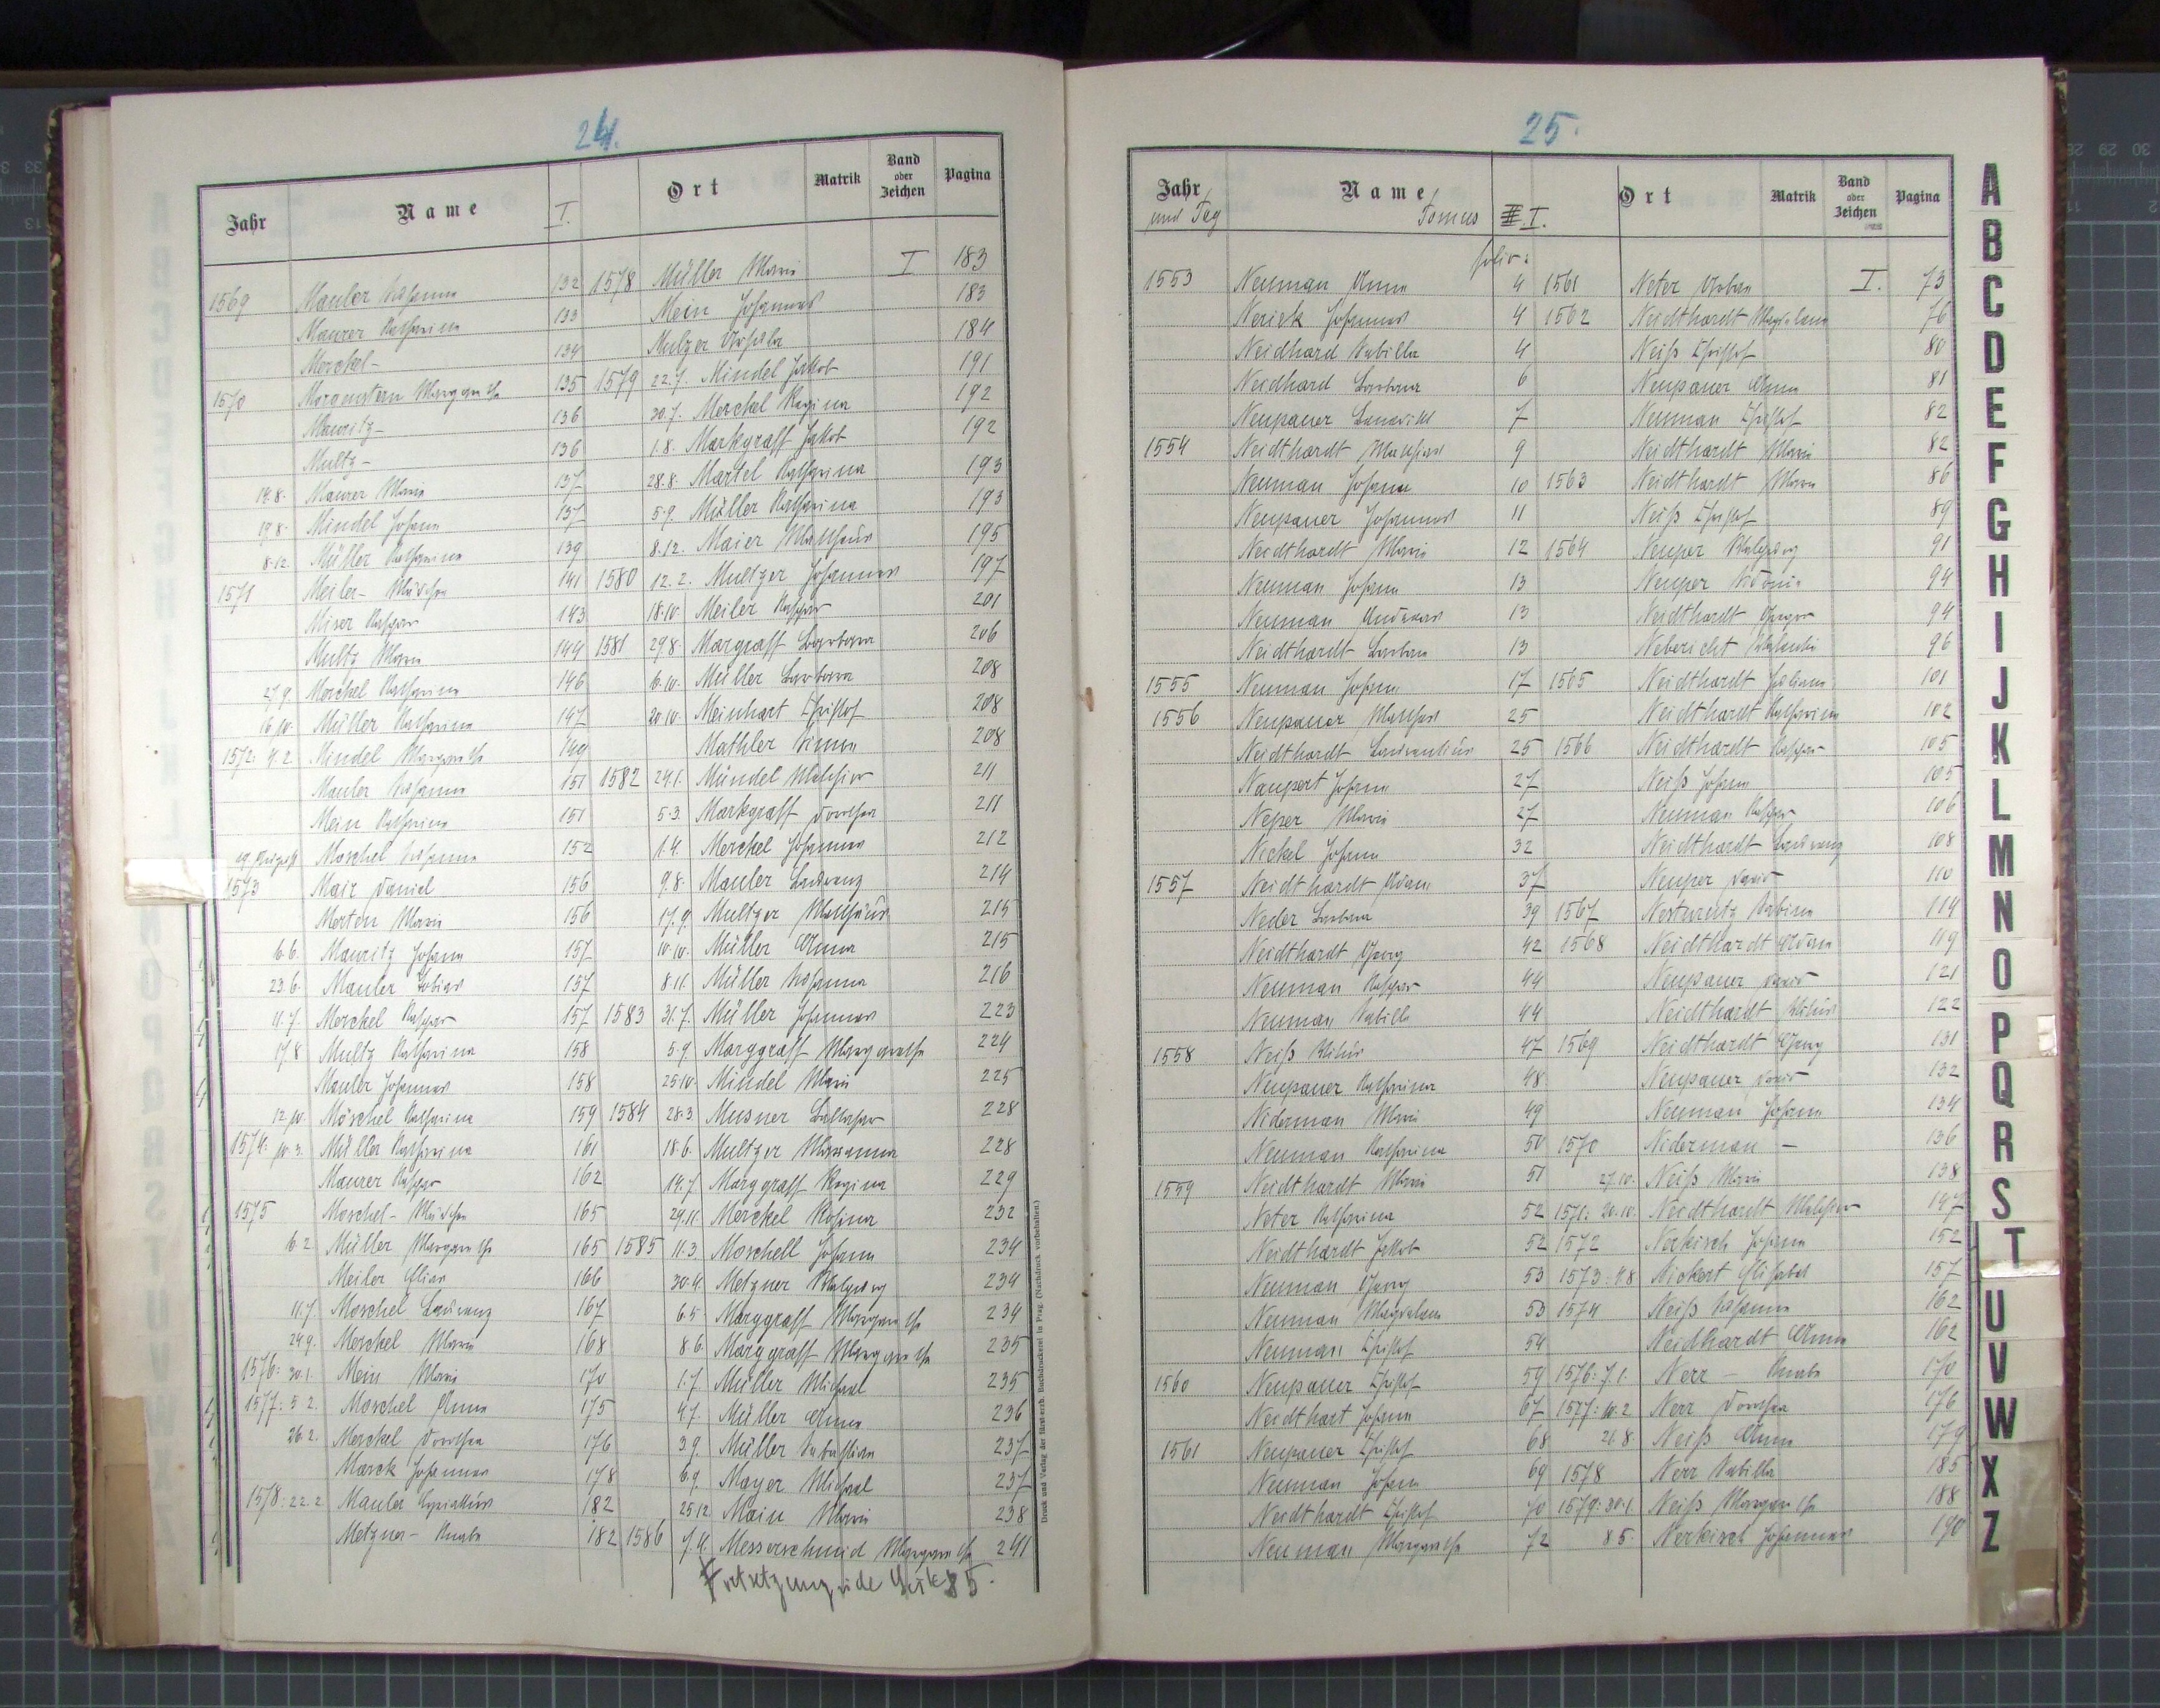 24.
Jahr Name I. Ort Matrik Band oder Zeichen Pagina
1569 Mauler Susanna 132 1578 Müller Maria I 183
Maurer Katharina 133 Mein Johannes 183
Merckel - 134 Mulzer Ursula 184
1570 Morgenstern Margaretha 135 1579 22.7. Mindel Jakob 191
Mauritz - 136 30.7. Merckel Regina 192
Multz - 136 1.8. Markgraff Jakob 192
14.8. Maurer Maria 137 28.8. Martel Katharina 193
19.8. Mindel Johann 137 5.9. Müller Katharina 193
8.12. Müller Katharina 139 8.12. Maier Matthäus 195
1571 Meiler - Mädchen 141 1580 12.2. Multzer Johannes 197
Miser Kaspar 143 18.10. Meiler Kaspar 201
Multz Maria 144 1581 29.8. Margraff Barbara 206
27.9. Merckel Katharina 146 6.10. Müller Barbara 208
16.10. Müller Katharina 147 20.10. Meinhart Christof 208
1572: 4.2. Mindel Margaretha 149 Mathler Simon 208
Mauler Susanna 151 1582 24.1. Mündel Melchior 211
Mein Katharina 151 5.3. Markgraff Dorothea 211
19. August Moschel Susanna 152 1.4. Merckel Johannes 212
1573 Mair Daniel 156 9.8. Mauler Laurenz 214
Merten Maria 156 17.9. Multzer Matthäus 215
6.6. Mauritz Johann 157 10.10. Müller Anna 215
23.6. Mauler Tobias 157 8.11. Müller Susanna 216
11.7. Merckel Kaspar 157 1583 31.7. Müller Johannes 223
17.8 Multz Katharina 158 5.9. Marggraff Margaretha 224
Mauler Johannes 158 25.10. Mindel Maria 225
12.10. Möschel Katharina 159 1584 28.3 Musner Balthasar 228
1574: 10.3. Müller Katharina 161 18.6. Multzer Marianna 228
Maurer Kaspar 162 14.7. Marggraff Regina 229
1575 Moschel - Mädchen 165 29.11. Merckel Rosina 232
6.2. Müller Margaretha 165 1585 11.3. Moschell Johann 234
Meiler Elias 166 30.4. Metzner Walpurg 234
11.7. Moschel Laurenz 167 6.5 Marggraff Margaretha 234
24.9. Merckel Maria 168 8.6. Marggraff Margaretha 235
1576: 30.1. Mein Maria 170 1.7. Müller Michael 235
1577: 5.2. Moschel Anna 175 4.7. Müller Anna 236
26.2. Merckel Dorothea 176 3.9. Müller Sebastian 237
Marck Johannes 178 6.9. Mayer Michael 237
1578: 22.2. Mauler Kyriakus 182 25.12 Main Maria 238
Metzner - Knabe 182 1586 7.4. Messerschmid Margaretha 241
Fortsetzung side Seite 85.
Druck und Verlag der fürst-erzb. Buchdruckerei in Prag. (Nachdruck vorbehalten.)
25.
Jahr und Tag Name Tomus I. Ort Matrik Band oder Zeichen Pagina
folio:
1553 Neuman Anna 4 1561 Neter Urban I. 73
Nerick Johannes 4 1562 Neidthardt Magdalena 76
Neidhard Sabilla 4 Neiß Christof 80
Neidhard Barbara 6 Neupauer Anna 81
Neupauer Benedikt 7 Neuman Christof 82
1554 Neidthardt Matthias 9 Neidthardt Maria 82
Neuman Johann 10 1563 Neidthardt Maria 86
Neupauer Johannes 11 Neiß Christof 89
Neidthardt Maria 12 1564 Neuper Walpurg 91
Neuman Johann 13 Neuper Sidonia 94
Neuman Andreas 13 Neidthardt Gregor 94
Neidthardt Barbara 13 Nebericht 96
1555 Neuman Johann 17 1565 Neidthardt Juliana 101
1556 Neupauer Matthias 25 Neidthardt Katharina 102
Neidthardt Laurentius 25 1566 Neidthardt Kaspar 105
Naupert Johann 27 Neiß Johann 105
Neper Maria 27 Neuman Kaspar 106
Nickel Johann 32 Neidthardt Laurenz 108
1557 Neidthardt Adam 37 Neuper David 110
Neder Barbara 39 1567 Sabina 114
Neidthardt Georg 42 1568 Neidthardt Adam 119
Neuman Kaspar 44 Neupauer David 121
Neuman Sabilla 44 Neidthardt 122
1558 Neiß 47 1569 Neidthardt Georg 131
Neupauer Katharina 48 Neupauer David 132
Niderman Maria 49 Neuman Johann 134
Neuman Katharina 50 1570 Niderman - 136
1559 Neidthardt Maria 51 27.10. Neiß Maria 138
Neter Katharina 52 1571: 20.10. Neidthardt Melchior 147
Neidthardt Jakob 52 1572 Nerkisch Johann 152
Neuman Georg 53 1573: 4.8 Nickert Elisabet 157
Neuman Magdalena 53 1574 Neiß Susanna 162
Neuman Christof 54 Neidhardt Anna 162
1560 Neupauer Christof 59 1576: 7.1. Nerr - Knabe 170
Neidthart Johann 67 1577: 10.2 Nerr Dorothea 176
1561 Neupauer Christof 68 21.8. Neiß Anna 179
Neuman Johann 69 1578 Nerr Sabilla 185
Neidthardt Christof 70 1579: 30.1. Neiß Margaretha 188
Neuman Margaretha 72 8.5. Nerkisch Johannes 190
A
B
C
D
E
F
G
H
I
J
K
L
M
N
O
P
Q
R
S
T
U
V
W
X
Z